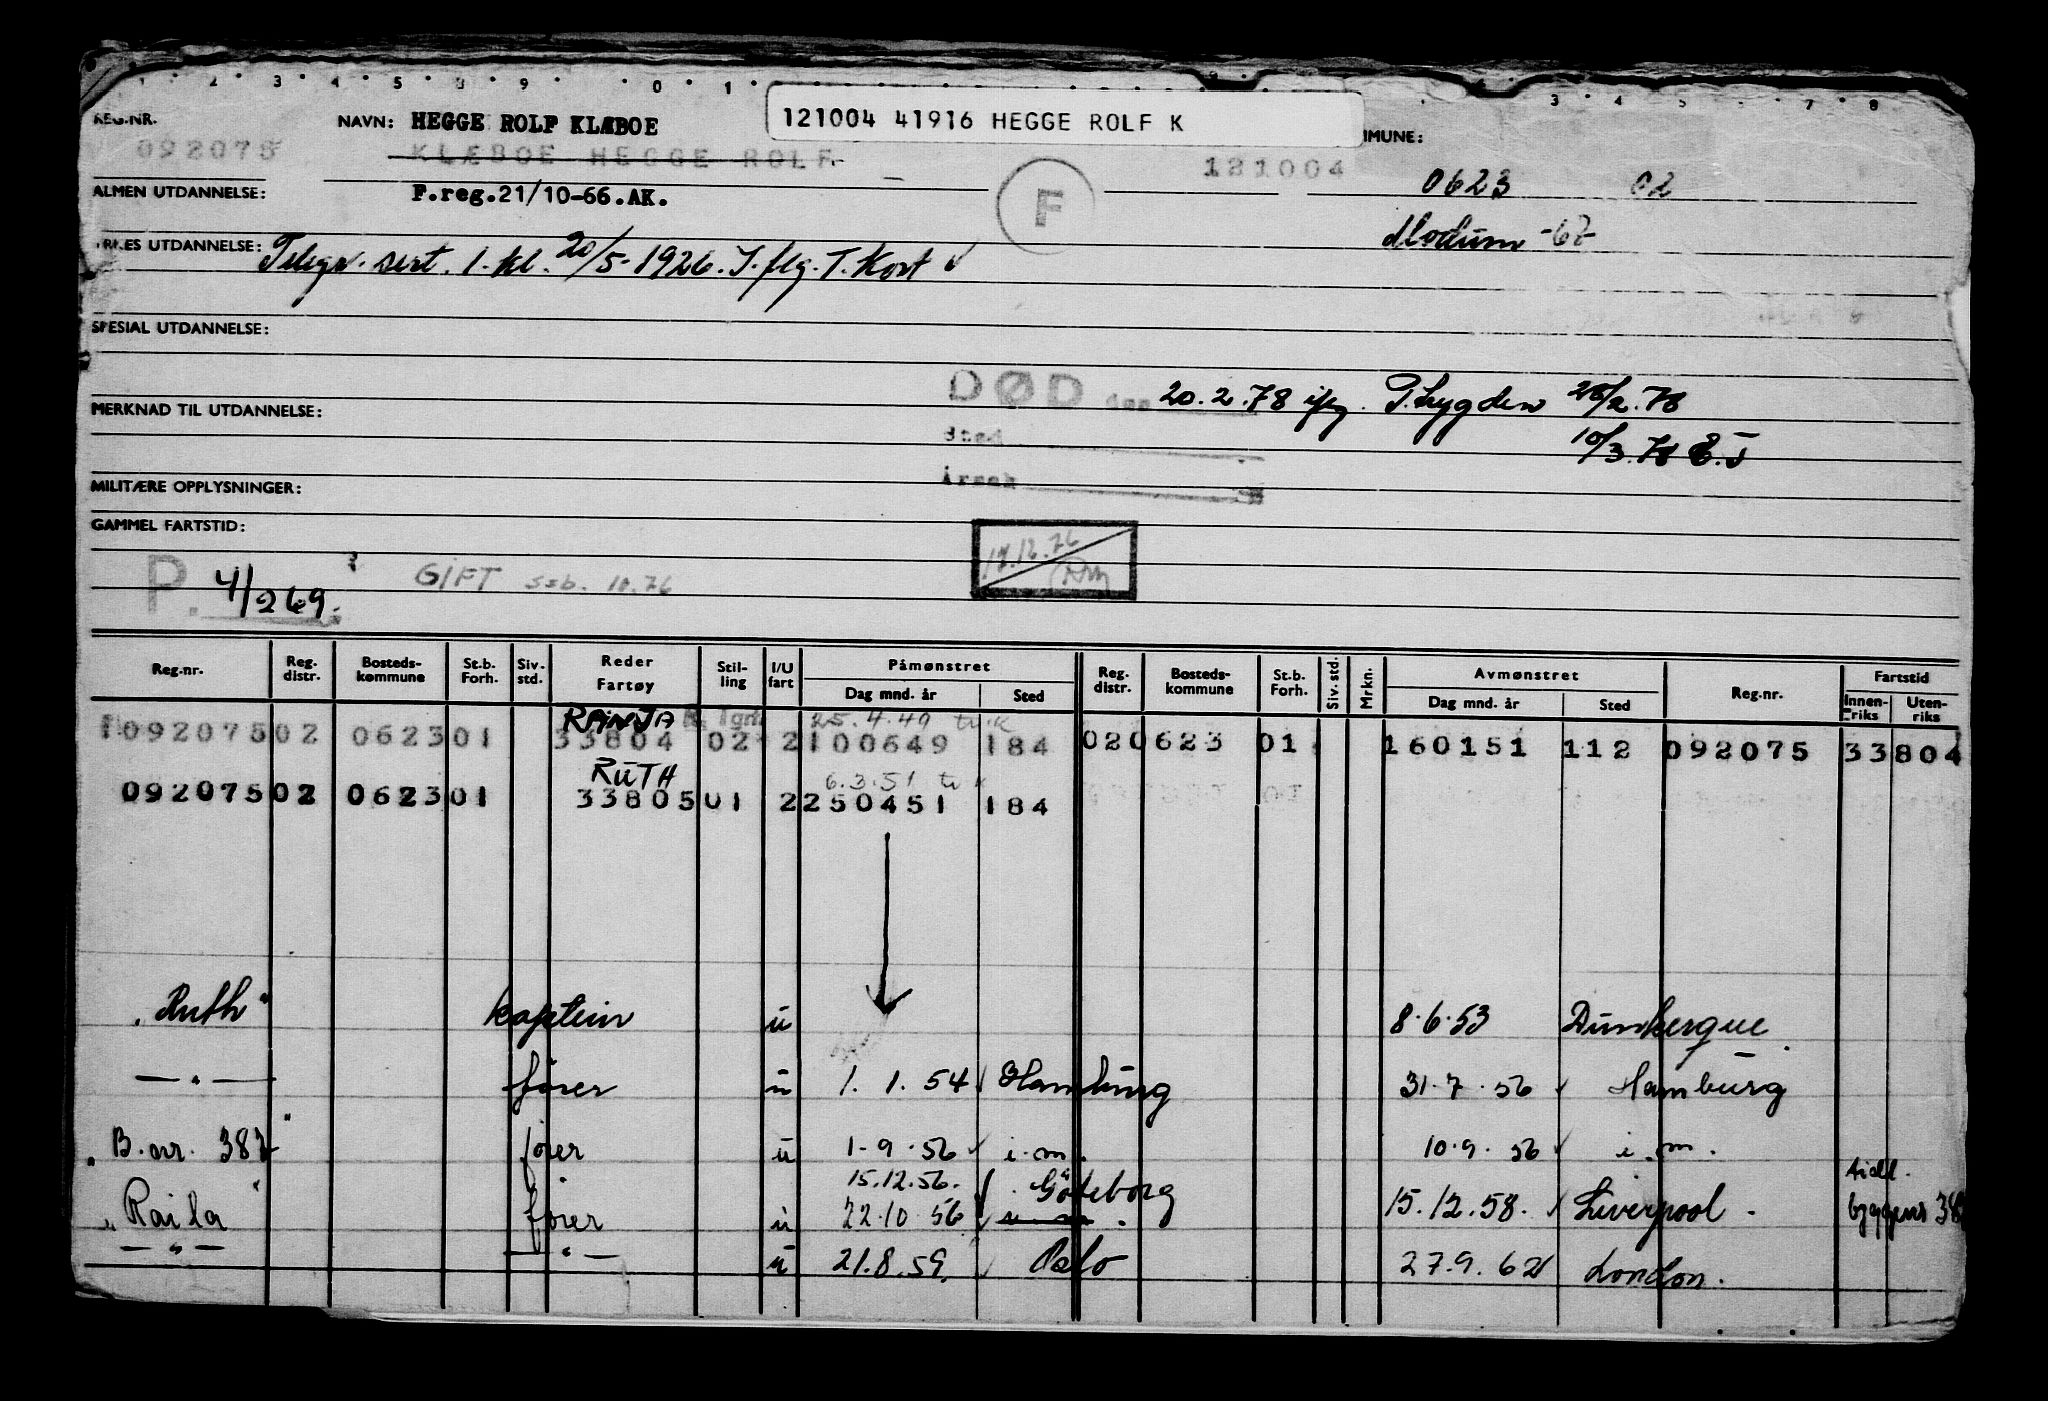 1 2 3 4 5 8 9 0 1 3 4 5 7 8
REG.NR. NAVN: HEGGE ROLF KLÆBOE 121004 41916 HEGGE ROLF K MMUNE:
092075 KLÆBOE HEGGE ROLF 121004 0623 02
ALMEN UTDANNELSE: F.reg.21/10-66.AK. F
Modum -67-
UTDANNELSE: Telegr. sert. 1. kl. 20/5-1926. I. flg. T. Kort
SPESIAL UTDANNELSE:
DØD den 20.2.78 iflg. T.trygden 28/2.78
MERKNAD TIL UTDANNELSE:
Sted 10/3.78
Årsak
MILITÆRE OPPLYSNINGER:
GAMMEL FARTSTID:
P. 4/269. GIFT ssb. 10.76
Reg.nr. Reg. distr. Bosteds- kommune St.b. Forh. Siv. std. Reder Fartøy Stil- ling I/U fart Påmønstret Dag mnd. år Sted Reg. distr. Bosteds- kommune St.b. Forh. Siv. std. Mrkn. Avmønstret Dag mnd. år Sted Reg.nr. Fartstid Innen- riks Uten- riks
RANJA 25.4.49
092075 02 0623 01 33804 02 2 100649 184 02 0623 01 160151 112 092075 33804
RUTH 6.3.51
092075 02 0623 01 33805 01 2 250451 184
"Ruth" kaptein u 8.6.53 Dunkerque
— " — fører u 1.1.54 Hamburg 31.7.56 Hamburg
"B.nr. 382" fører u 1-9.56 i.m. 10.9.56 i.m.
15.12.56. Göteborg
"Raila" fører u 22.10.56 i.m. 15.12.58. Liverpool
— " — — " — u 21.8.59. Oslo 27.9.62 London.